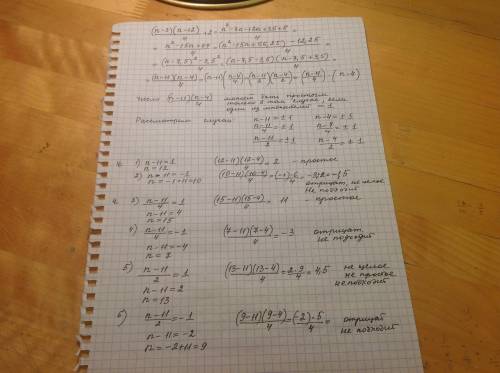 (n-3)(n-12)/4 + 2 = (n²-3n-12n+36+8)/4 =
= (n²-15n+44)/4 = ((n²-15n+56,25)-12,25)/4 =
= ((n-7,5)²-3,5²)/4 = (n-7,5-3,5)(n-7,5+3,5)/4 =
= (n-11)(n-4)/4 = (n-11)((n-4)/4) = ((n-11)/2)((n-4)/2) = ((n-11)/4)·(n-4)
Число (n-11)(n-4)/4 может быть простым
только в том случае, если
один из множителей = 1
Рассмотрим случаи: n-11=±1 n-4=±1
(n-11)/4=±1 (n-4)/4=±1
(n-11)/2=±1 (n-4)/2=±1
1) n-11=1 (12-11)(12-4)/4 = 2 - простое
n=12
2) n-11=-1 (10-11)(10-4)/4 = (-1)·6/4 = -3:2=-1,5
n=-1+11=10 отрицат, не целое.
Не подходит
3) (n-11)/4=1 (15-11)(15-4)/4 = 11 - простое
n-11=4
n=15
4) (n-11)/4=-1 (7-11)(7-4)/4 = -3 отрицат.
не подходит
n-11=-4
n=7
5) (n-11)/2=1 (13-11)(13-4)/4 = 2·9/4 = 4,5 не целое
не простое
не подходит
n-11=2
n=13
6) (n-11)/2=-1 (9-11)(9-4)/4 = (-2)·5/4 = отрицат
не подходит
n-11=-2
n=-2+11=9